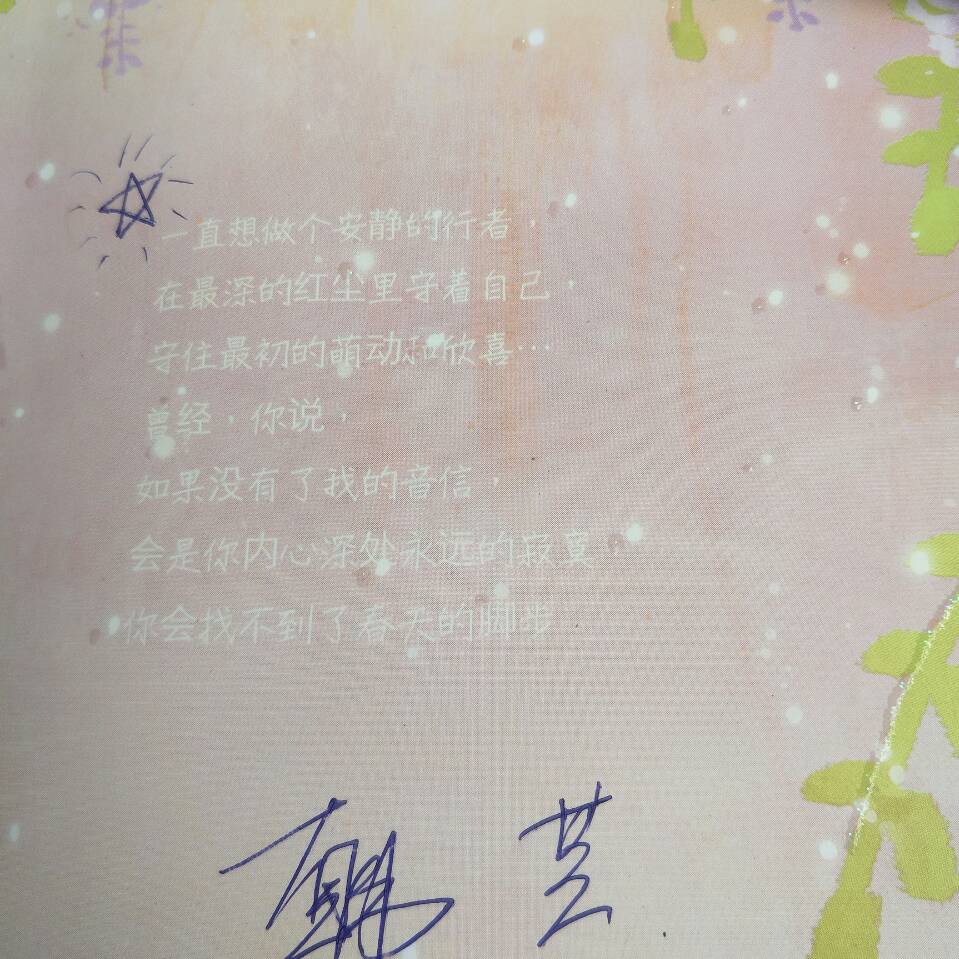 一直想做个安静的行者，
在最深的红尘里守着自己，
守住最初的萌动和欣喜…
曾经，你说，
如果没有了我的音信，
会是你内心深处永远的寂寞
你会找不到了春天的脚步